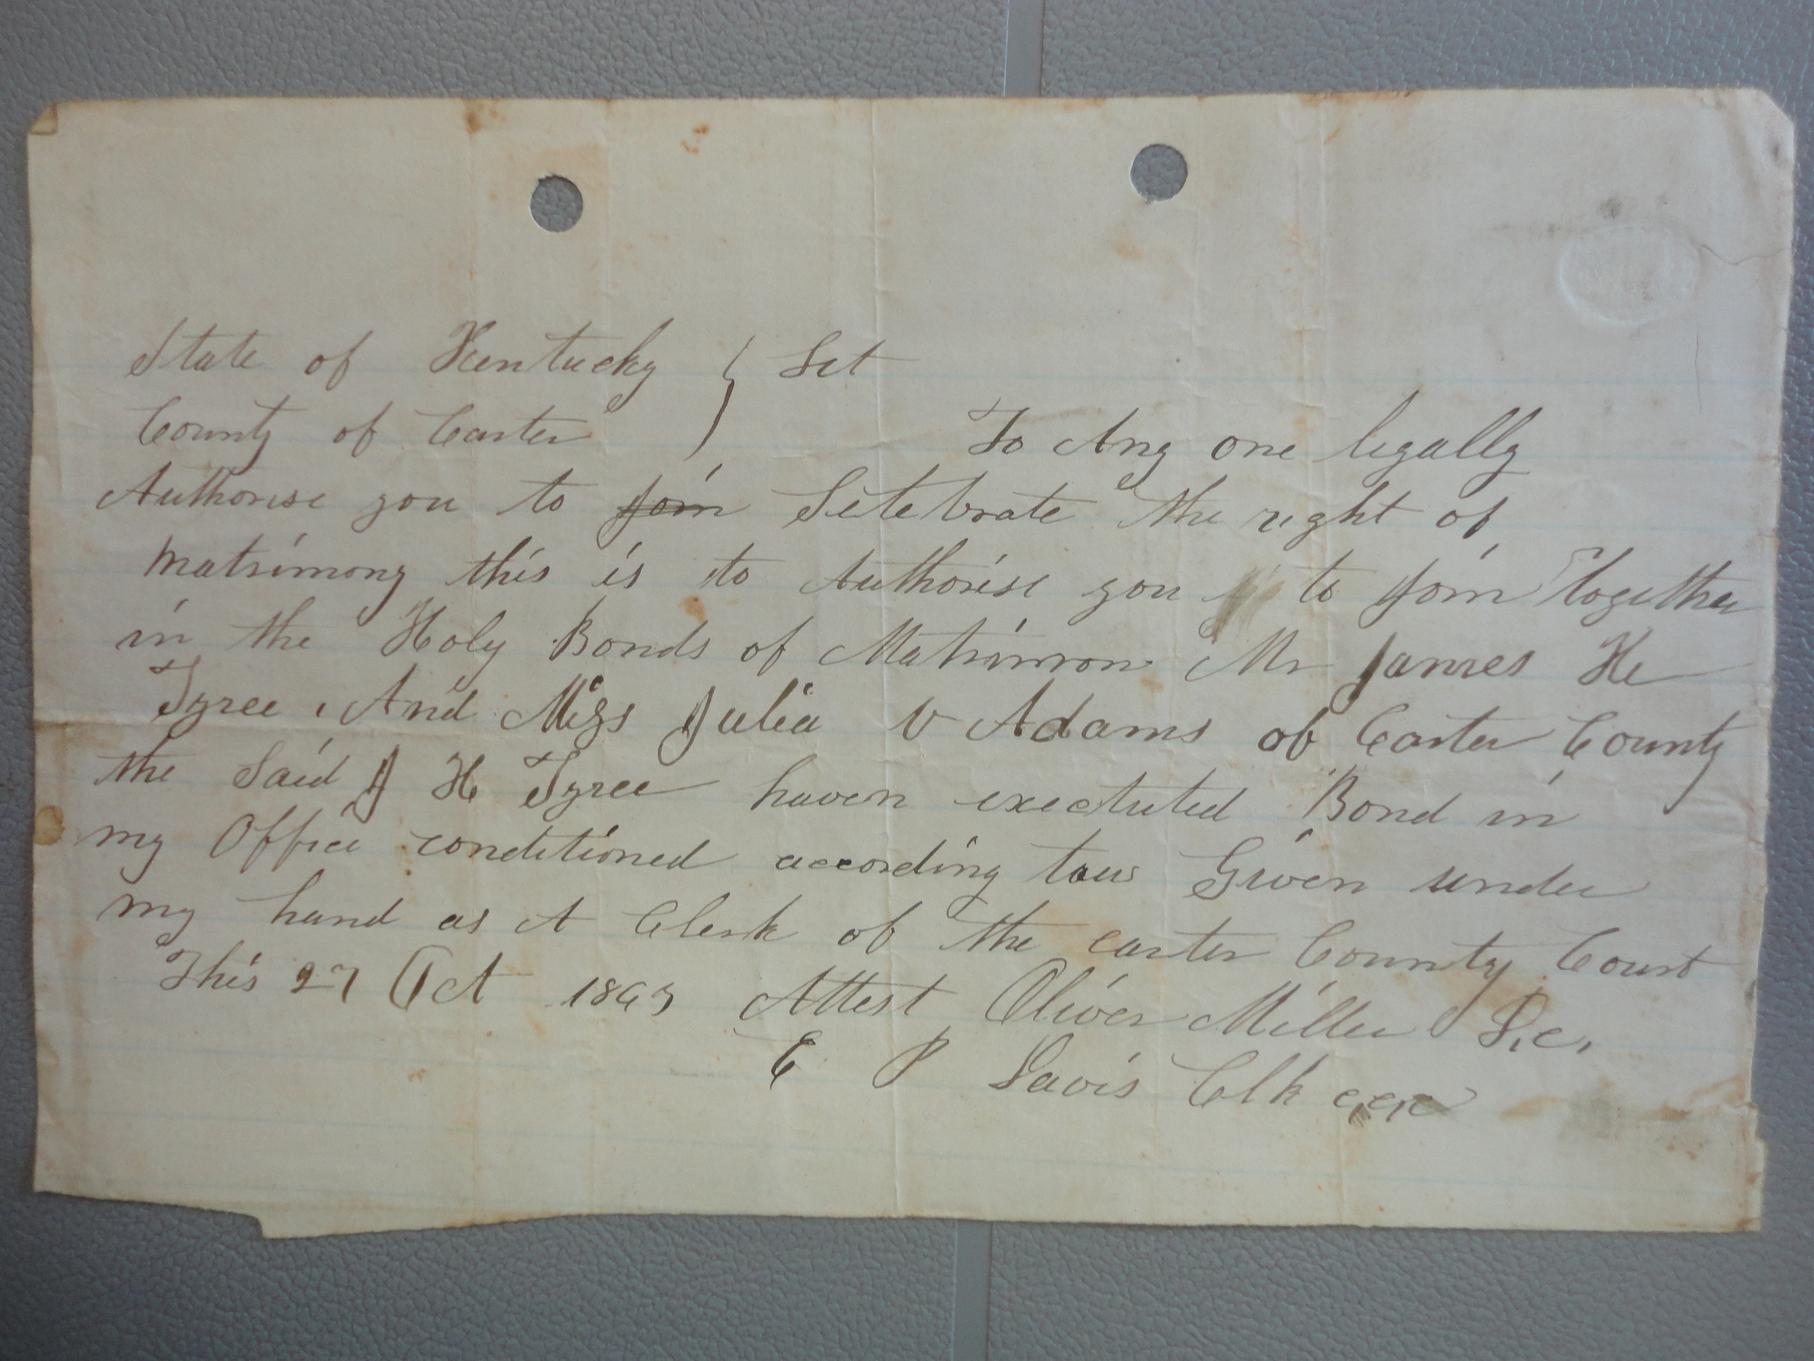 State of Kentucky } Sct
County of Carter
To Any one legally
Authorise you to join Selebrate the right of
Matrimony this is to Authorise you to join together
in the Holy Bonds of Matrimon Mr James H
Tyree , And Miss Julia V Adams of Carter County
the Said J H Tyree haven exectuted Bond in
my Office conditioned according Given under
my hand as A Clerk of the carter County Court
This 27 Oct Attest Oliver Miller D.C.
E P Davis Clk